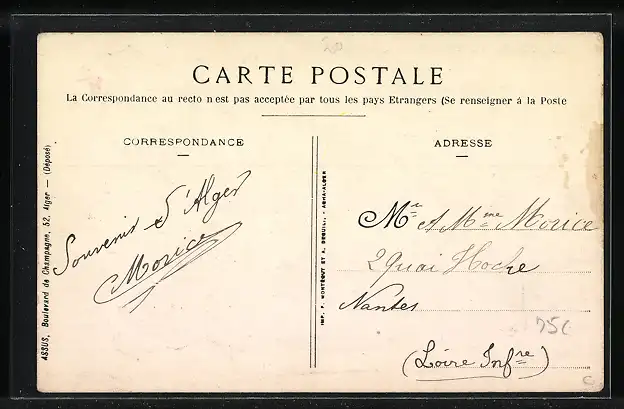 CARTE POSTALE
La Correspondance au recto n'est pas acceptée par tous les pays Etrangers (Se renseigner à la Poste
CORRESPONDANCE
ADRESSE
Souvenir d'Alger
Morice
Mr et Mme Morice
2 Quai Hoche
Nantes
(Loire Infre)
75c
C
ASSUS, Boulevard de Champagne, 52, Alger — (Déposé)
IMP. F. MONTÉGUT ET A. DEGUILI, - AGHA-ALGER